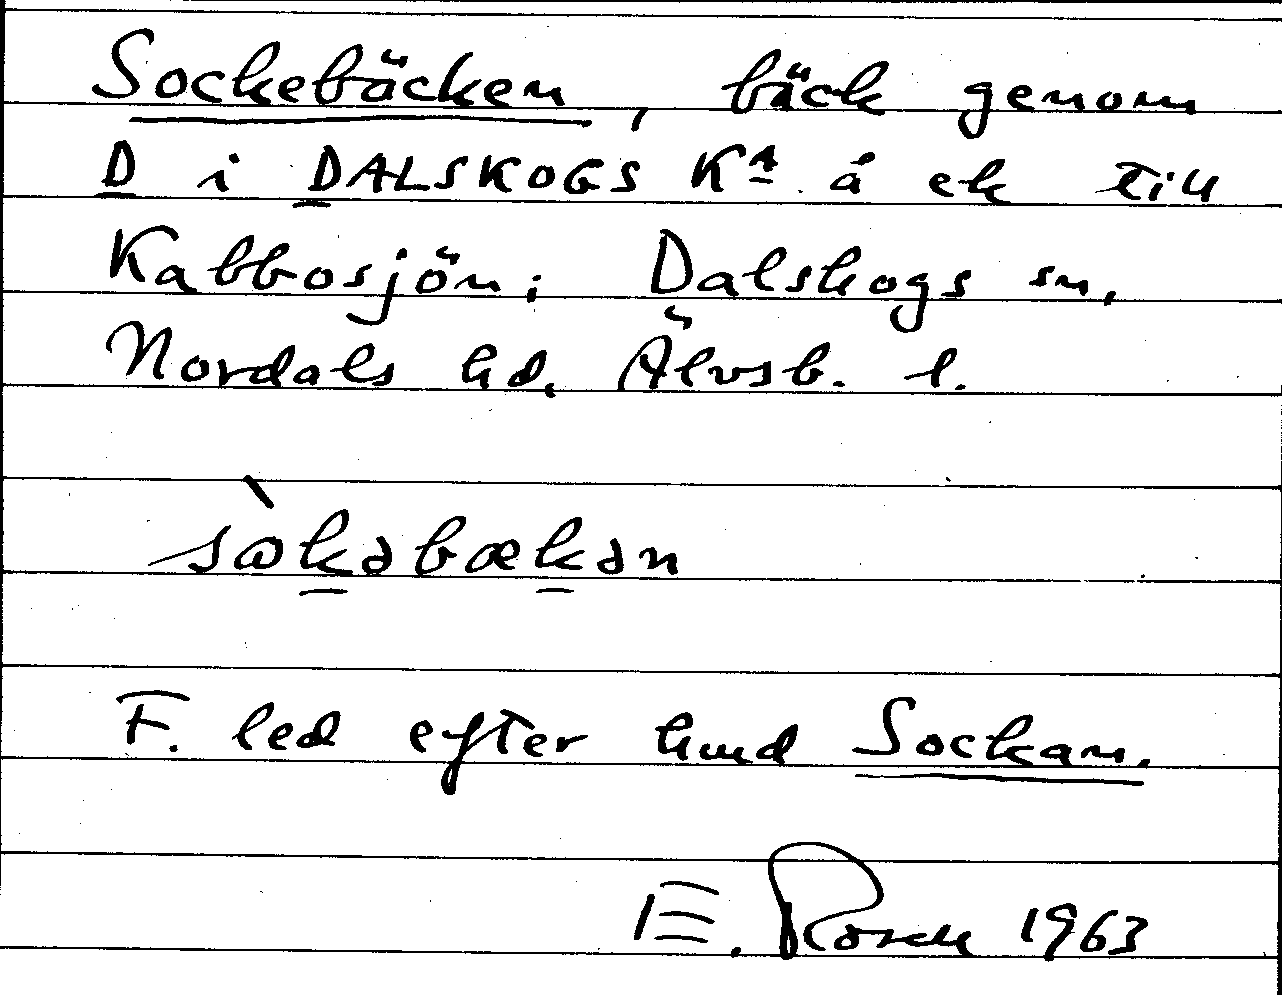 Sockebäcken, bäck genom
D i DALSKOGS Kᴬ å ek till
Kabbosjön; Dalskogs sn,
Nordals hd, Älvsb. l.
sὰkəbækən
F. led efter hmd Sockan.
E. Rosell 1963